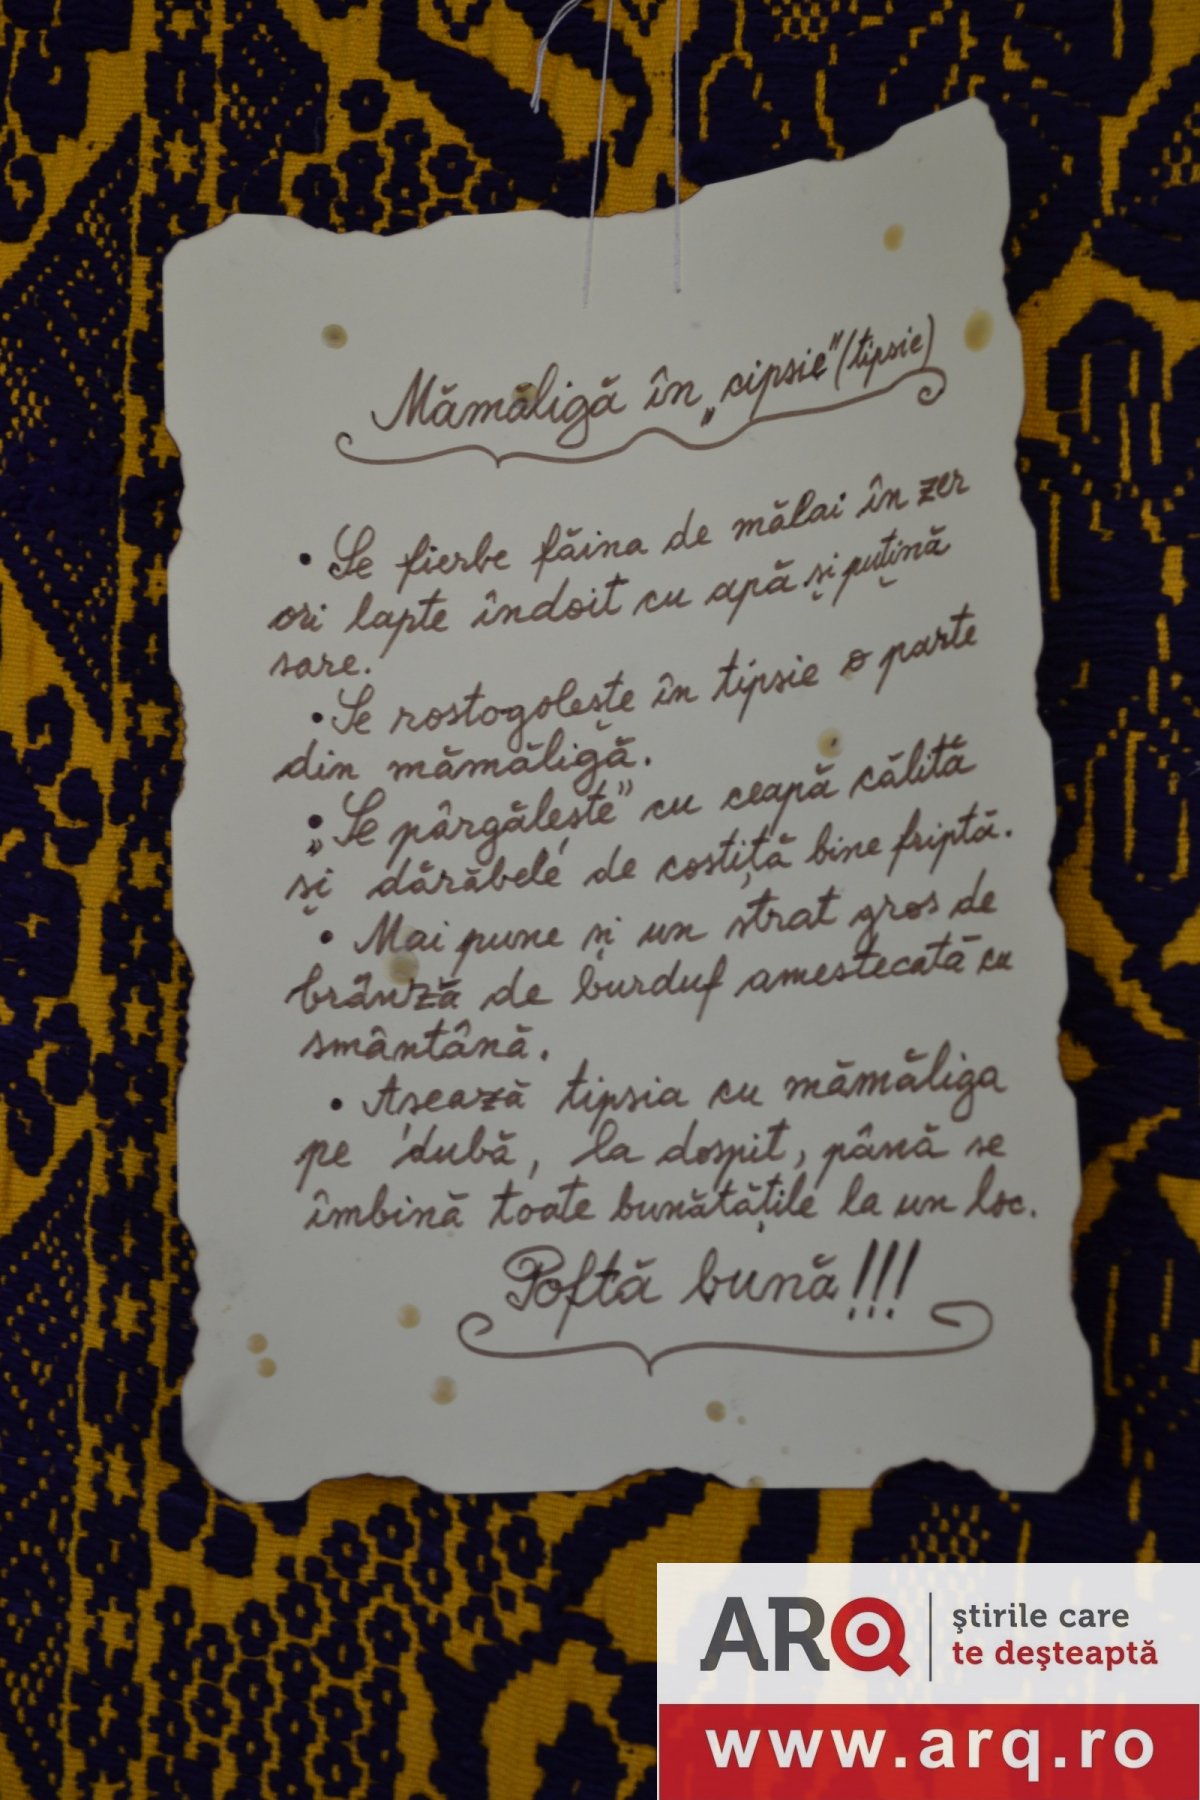 Mămăligă în „cipsie” (tipsie)
• Se fierbe făina de mălai în zer
ori lapte îndoit cu apă și puțină
sare.
• Se rostogolește în tipsie o parte
din mămăligă.
• „Se pârgălește” cu ceapă călită
și dărăbele de costiță bine friptă.
• Mai pune și un strat gros de
brânză de burduf amestecată cu
smântână.
• Asează tipsia cu mămăliga
pe 'dubă, la dospit, până se
îmbină toate bunătățile la un loc.
Poftă bună!!!
ARQ
ştirile care
te deşteaptă
www.arq.ro